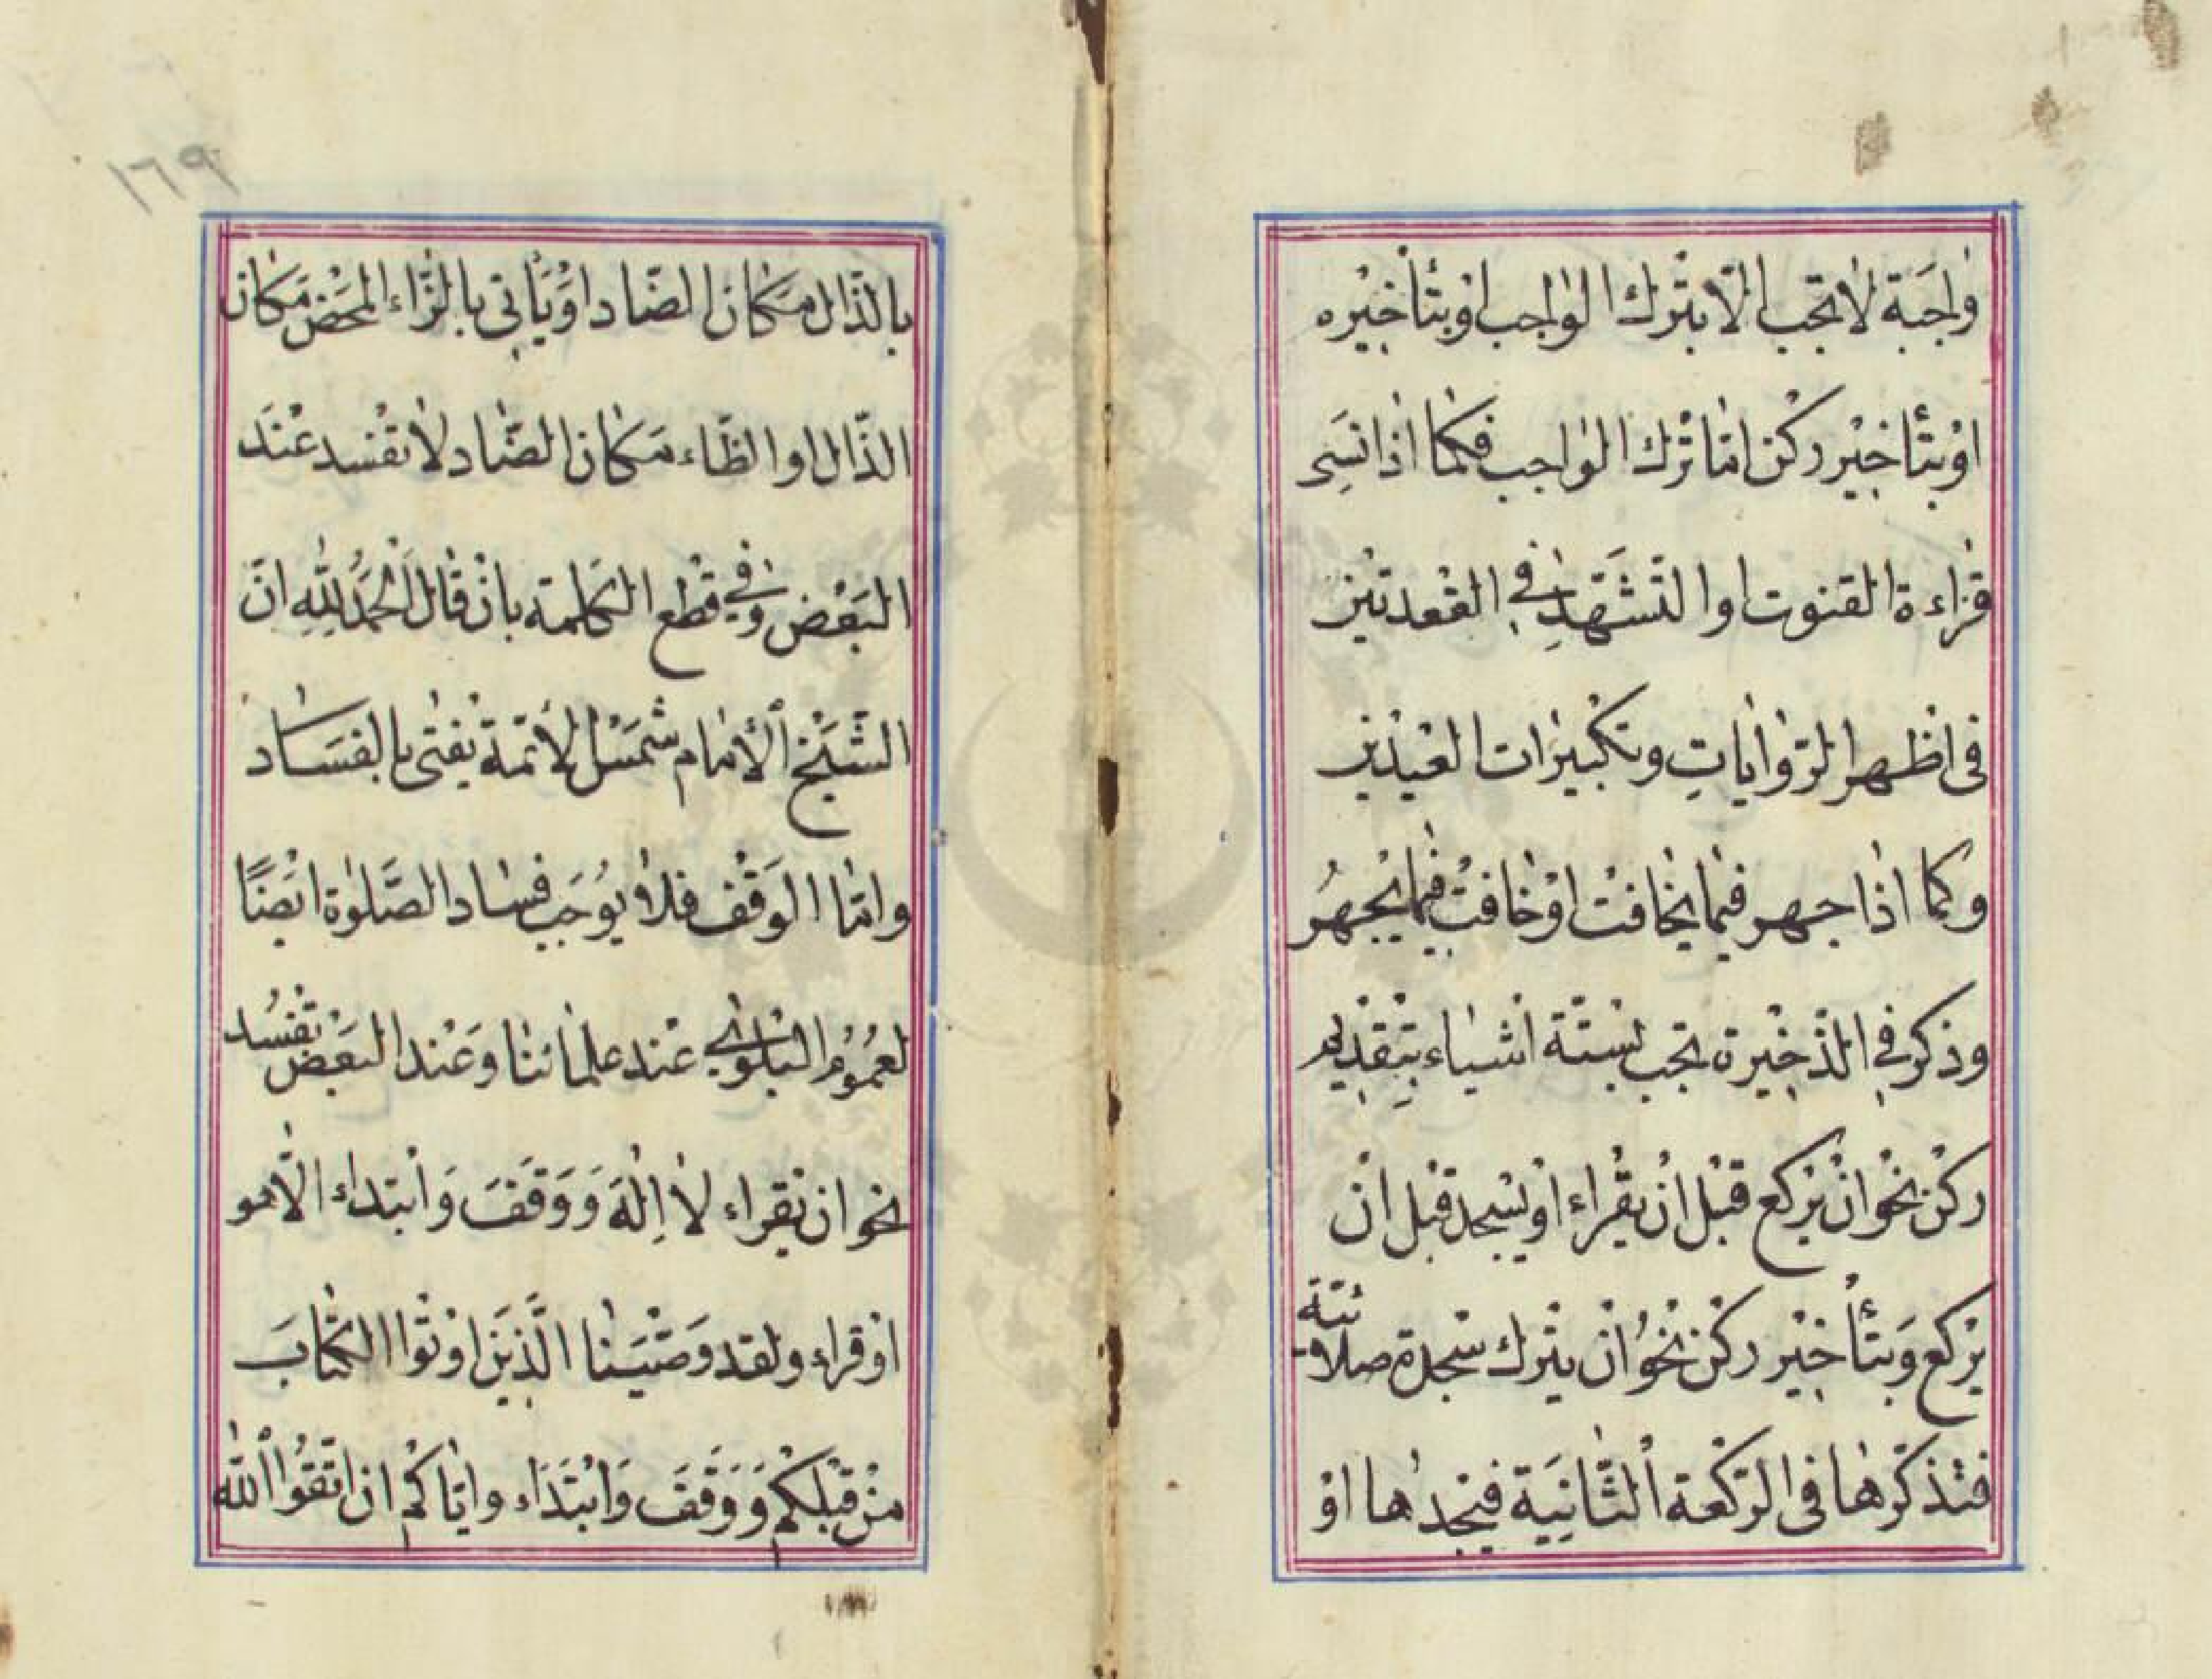 وٰاجبَة لاٰ تجب الّا بتْرك الوٰاجب اوْ بتأخيْره
اوْ بتأخيْر ركْن امّا ترْك الوٰاجب فكمٰا اذا نسَِى
قرٰاءة القنوت او التّشَهّدِ فِي القعْدتيْن
فى اظْهر الرّوٰايٰاتِ وتكْبيرٰات العيْديْن
وكما اذٰا جهر فيمٰا يخٰافتْ اوْ خٰافتْ فيمٰا يجْهرُ
وذكر فِي الذّخيْرة تجب بستّة اشْيٰاء بتِقْديْم
ركْن نحْو انْ يرْكع قبْل انْ يقْراء اوْ يسْجد قبْل انْ
يرْكع وَبتأْخيْر ركْن نحْوُ انْ يتْرك سْجدة صلاتيّة
فتذكّرهٰا فى الرّكْعة الثّٰانيَة فيسْجدهٰا اوْ
١٦٩
بالذّال مَكٰان الضّاد اوْ يَأتِى بالزّاء المحْض مَكٰان
الذّال او الظّاء مَكٰان الضّٰاد لاٰ تفْسد عنْدَ
البَعْض وفِي قطْع الكَلمة بانْ قٰال اَلْحَمْدُ لِلّٰهِ انّ
الشّيْخ الأمٰام شمْسْ الأئمّة يُفتٰى بالفسَاد
وامّا الوَقْف فلاٰ يوُجَب فسٰاد الصَّلوٰة ايْضًا
لعمُوُم البَلْوٰى عنْد علمٰائنٰا وَعنْد البَعْض تفْسُد
نحْو ان يقراء لاٰ اِلٰهَ وَوَقفَ وَابْتداء الّا هو
اوْ قراء ولقد وَصّيْنٰا الَّذيَن اوْتوُا الكتٰابَ
منْ قبْلكمْ وَوَقَفَ وَابْتَدَاء وايّٰاكمْ ان اتّقوُا اللّٰه